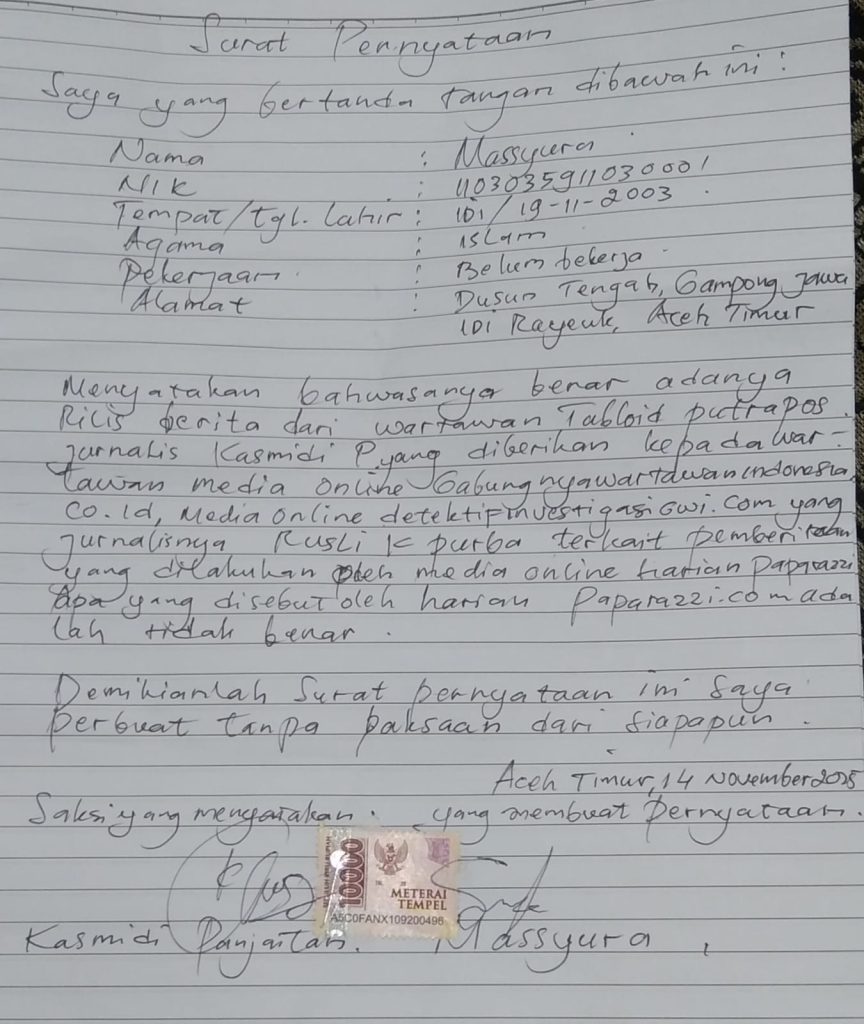 Surat Pernyataan
Saya yang bertanda tangan dibawah ini :
Nama : Massyura
NIK : 1103035911030001
Tempat/tgl. Lahir : IDI / 19-11-2003
Agama : Islam
Pekerjaan : Belum bekerja
Alamat : Dusun Tengah, Gampong Jawa
IDI Rayeuk, Aceh Timur
Menyatakan bahwasanya benar adanya
Rilis berita dari wartawan Tabloid putrapos
jurnalis Kasmidi P yang diberikan kepada war-
tawan media online Gabungnyawartawanindonesia
Co.Id, Media online detektifinvestigasigwi.com yang
jurnalisnya Rusli K purba terkait pemberitaan
yang dilakukan oleh media online harian Paparazzi
apa yang disebut oleh harian Paparazzi.com ada
lah tidak benar.
Demikianlah Surat pernyataan ini saya
perbuat tanpa paksaan dari siapapun.
Aceh Timur, 14 November 2025
Saksi yang menyatakan. yang membuat Pernyataan.
10000
METERAI
TEMPEL
A5C0FANX109200496
Kasmidi Panjaitan. Massyura